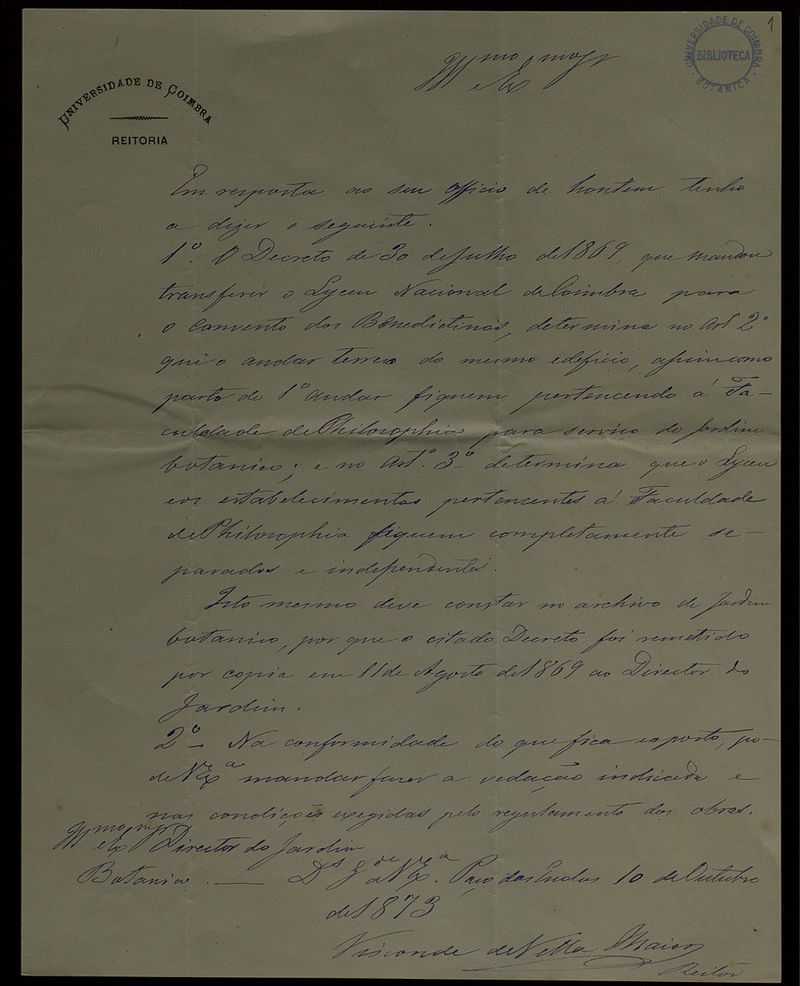 1
UNIVERSIDADE DE COIMBRA
BIBLIOTECA
BOTANICA
UNIVERSIDADE DE COIMBRA
REITORIA
Illmo e Exmo Sr
Em resposta ao seu officio de hontem tenho
a dizer o seguinte.
1º. O Decreto de 30 de Julho de 1869, que mandou
transferir o Lyceu Nacional de Coimbra para
o convento dos Benedictinos, determina no Art 2º
que o andar terreo do mesmo edificio, assim como
parte do 1º andar fiquem pertencendo á Fa-
culdade de Philosophia para serviço do Jardim
botanico; e no Art.º 3º determina que o Lyceu
e os estabelecimentos pertencentes á Faculdade
de Philosophia fiquem completamente se-
parados e independentes.
Isto mesmo deve constar no archivo do Jardim
botanico, por que o citado Decreto foi remetido
por copia em 11 de Agosto de 1869 ao Director do
Jardim.
2º - Na conformidade do que fica exposto, po-
de V Exª mandar fazer a vedação indicada e
nas condições exigidas pelo regulamento das obras.
Illmo e Exmo Sr Director do Jardim
Botanico. — Ds Gde a V Exª. Paço das Escolas 10 de Outubro
de 1873
Visconde de Villa Maior
Reitor